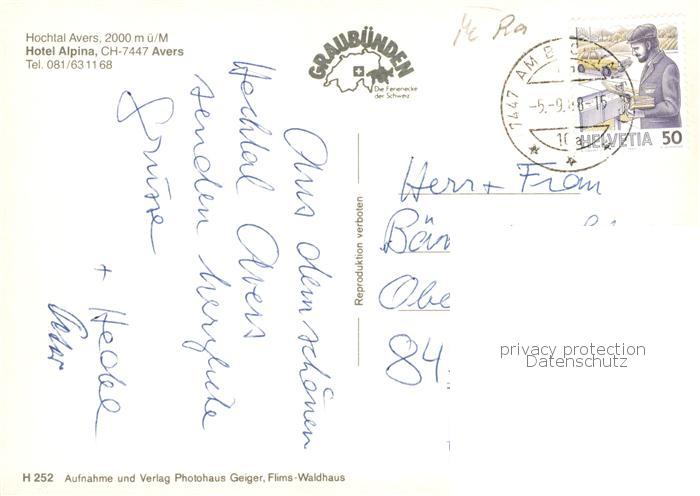 Hochtal Avers, 2000 m ü/M
Hotel Alpina, CH-7447 Avers
Tel. 081/63 11 68
GRAUBÜNDEN
Die Ferienecke
der Schweiz
7447 AM
-5.-9.88-15
HELVETIA 50
Aus dem schönen
Hochtal Avers
senden herzliche
Grüsse
+ Heckel
Peter
Reproduktion verboten
Herr + Frau
Bän
Obe
843
privacy protection
Datenschutz
H 252 Aufnahme und Verlag Photohaus Geiger, Flims-Waldhaus